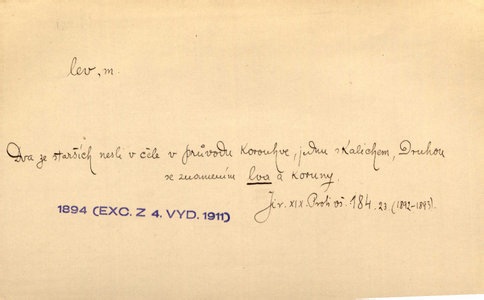 lev, m.
Dva ze starších nesli v čele v průvodu korouhve, jednu s kalichem, druhou
se znamením lva a koruny.
Jir. XIX. Proti vš. 184. 23. (1892-1893).
1894 (EXC. Z 4. VYD. 1911)